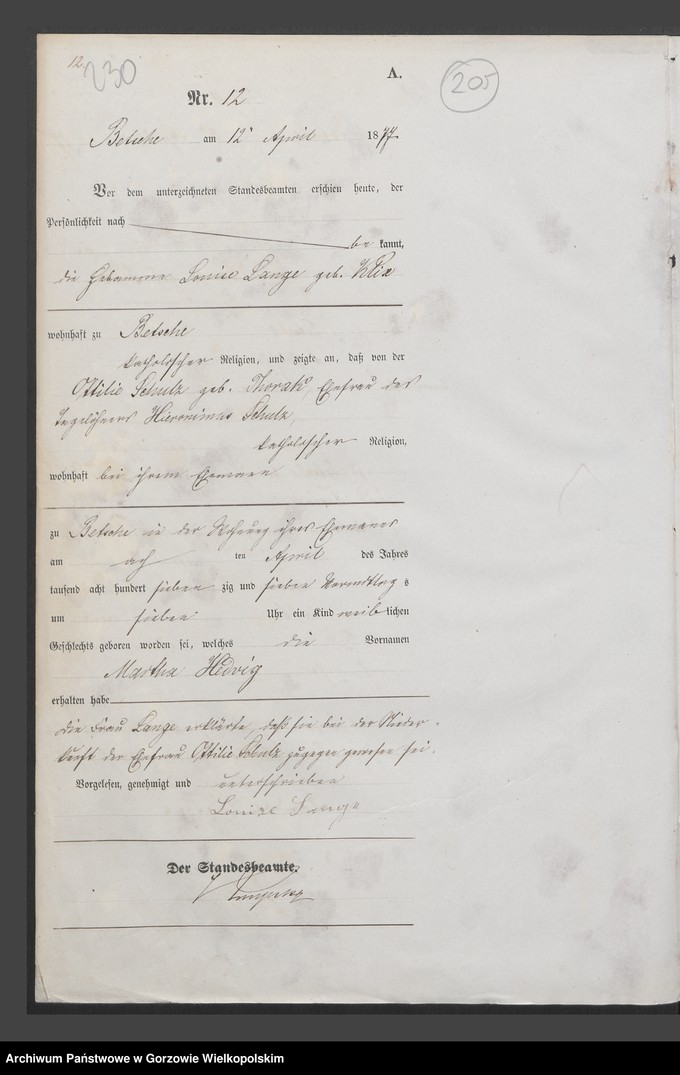 12.
230
A.
205
Nr. 12
Betsche am 12 April 1877
Vor dem unterzeichneten Standesbeamten erschien heute, der
Persönlichkeit nach
be kannt,
die Hebamme Louise Lange geb. Klix
wohnhaft zu Betsche
katholischer Religion, und zeigte an, daß von der
Ottilie Schulz geb. Ehefrau des
Tagelöhners Hieronimus Schulz,
katholischer Religion,
wohnhaft bei ihrem Ehemann
zu Betsche in der Wohnung ihres Ehemanes
am ach ten April des Jahres
tausend acht hundert sieben zig und sieben Vormittag s
um sieben Uhr ein Kind weib lichen
Geschlechts geboren worden sei, welches die Vornamen
Martha Hedvig
erhalten habe
die Frau Lange erklärte, daß sie bei der Nieder-
kunft der Ehefrau Ottilie Schulz zugegen gewesen sei.
Vorgelesen, genehmigt und unterschrieben
Louise Lange
Der Standesbeamte.
Archiwum Państwowe w Gorzowie Wielkopolskim